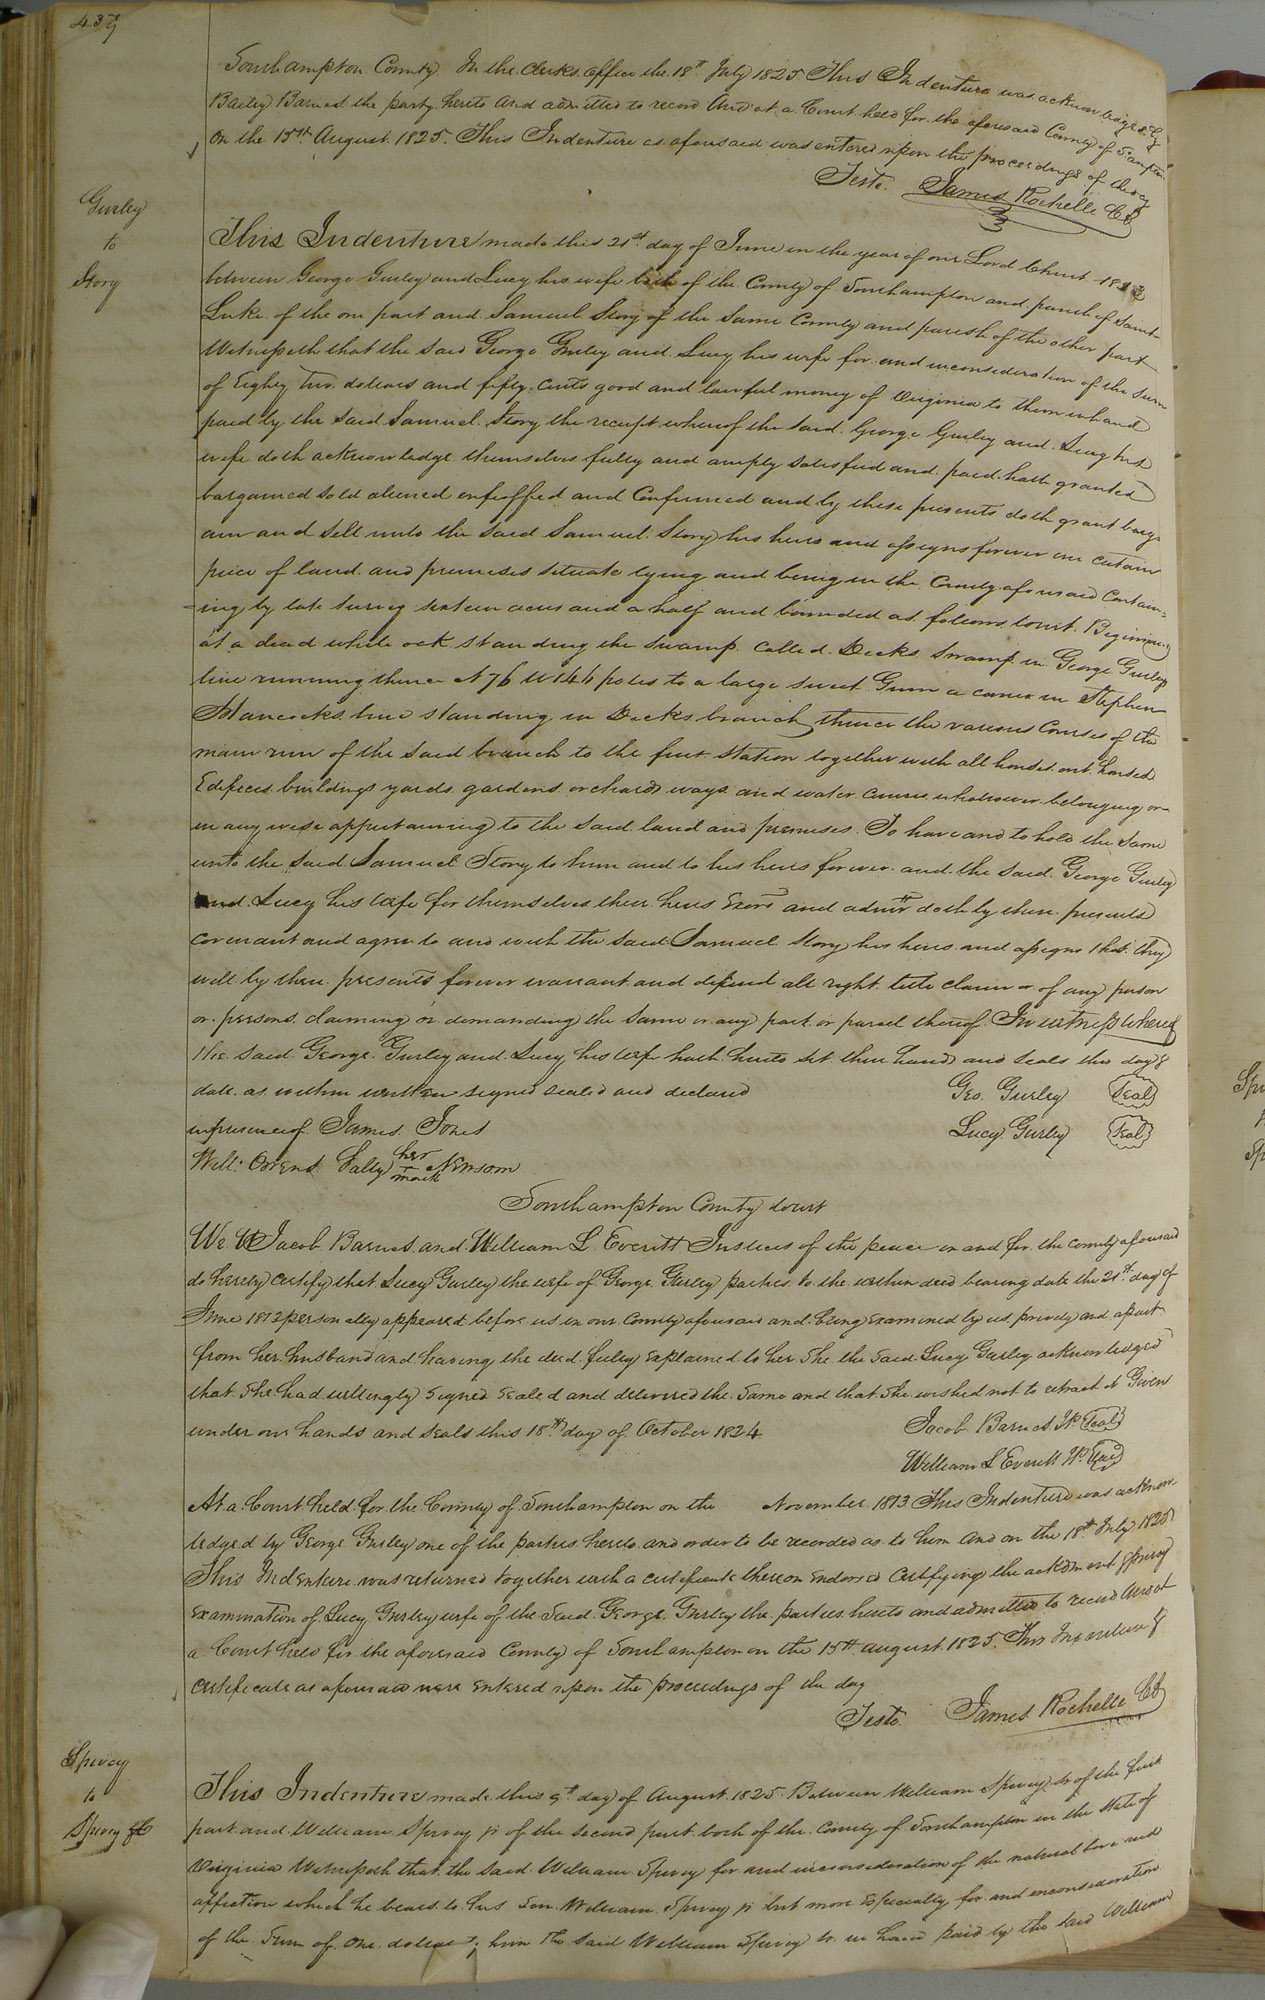 437
Southampton County In the Clerks office the 18th July 1825 This Indenture was acknowledged by
Bailey Barnes the party hereto and admitted to record And at a Court held for the aforesaid County of Sampton
on the 15th August 1825. This Indenture as aforesaid was entered upon the proceedings of the day
Teste. James Rochelle CC
Gurley
to
Story
This Indenture made this 21st day of June in the year of our Lord Christ 1812
between George Gurley and Lucy his wife both of the County of Southampton and parish of Saint
Luke of the one part and Samuel Story of the same County and parish of the other part
Witnesseth that the said George Gurley and Lucy his wife for and inconsideration of the sum
of Eighty two dollars and fifty cents good and lawful money of Virginia to them inhand
paid by the said Samuel Story the receipt whereof the said George Gurley and Lucy his
wife doth acknowledge themselves fully and amply satisfied and paid hath granted
bargained sold aliened enfeoffed and Confirmed and by these presents doth grant barg-
ain and sell unto the said Samuel Story his heirs and assigns forever one certain
peice of land and premises situate lying and being in the County aforesaid Contain-
-ing by late survey sixteen acres and a half and bounded as follows towit. Beginning
at a dead white oak standing the swamp called Decks Swamp in George Gurleys
line running thence N 76 W 144 poles to a large sweet Gum a corner in Stephen
Hancocks line standing in Decks branch thence the various Courses of the
main run of the said branch to the first station together with all houses out houses
Edifices buildings yards gardens orchards ways and water courses whatsoever belonging or
in any wise appertaining to the said land and premises. To have and to hold the same
unto the said Samuel Story to him and to his heirs forever and the said George Gurley
and Lucy his wife for themselves their heirs Exors and admrs doth by these presents
covenant and agree to and with the said Samuel Story his heirs and assigns that they
will by these presents forever warrant and defend all right title claim or of any person
or persons claiming or demanding the same or any part or parcel thereof. In witness whereof
the said George Gurley and Lucy his wife hath hereto set their hands and seals the day &
date as within written signed sealed and declared Geo. Gurley Seal
in presence of James Jones Lucy Gurley Seal
Will: Owens Sally her mark Newsom
Southampton County towit
We Jacob Barnes and William L. Everitt Justices of the peace in and for the county aforesaid
do hereby certify that Lucy Gurley the wife of George Gurley parties to the within deed bearing date the 21st day of
June 1812 personally appeared before us in our County aforesaid and being Examined by us privily and apart
from her husband and having the deed fully Explained to her She the said Lucy Gurley acknowledged
that She had willingly signed sealed and delivered the same and that She wished not to retract it Given
under our hands and seals this 18th day of October 1824.
Jacob Barnes JP. Seal
William L Everitt JP. Seal
At a Court held for the County of Southampton on the November 1813 This Indenture was acknow
ledged by George Gurley one of the parties hereto and order to be recorded as to him and on the 18th July 1825
This Indenture was returned together with a certificate thereon Endorsed Certifying the acknment & privy
Examination of Lucy Gurley wife of the said George Gurley the parties hereto and admitted to record And at
a Court held for the aforesaid County of Southampton on the 15th august 1825. This Indenture &
certificate as aforesaid were Entered upon the proceedings of the day
Teste. James Rochelle CC
Spivey
to
Spivey &c
This Indenture made this 9th day of August 1825. Between William Spivey Sr of the first
part and William Spivey jr of the second part both of the County of Southampton in the State of
Virginia Witnesseth that the said William Spivey for and inconsideration of the natural love and
affection which he bears to his Son William Spivey jr but more Especially for and inconsideration
of the Sum of One dollar to him the said William Spivey Sr in hand paid by the said William